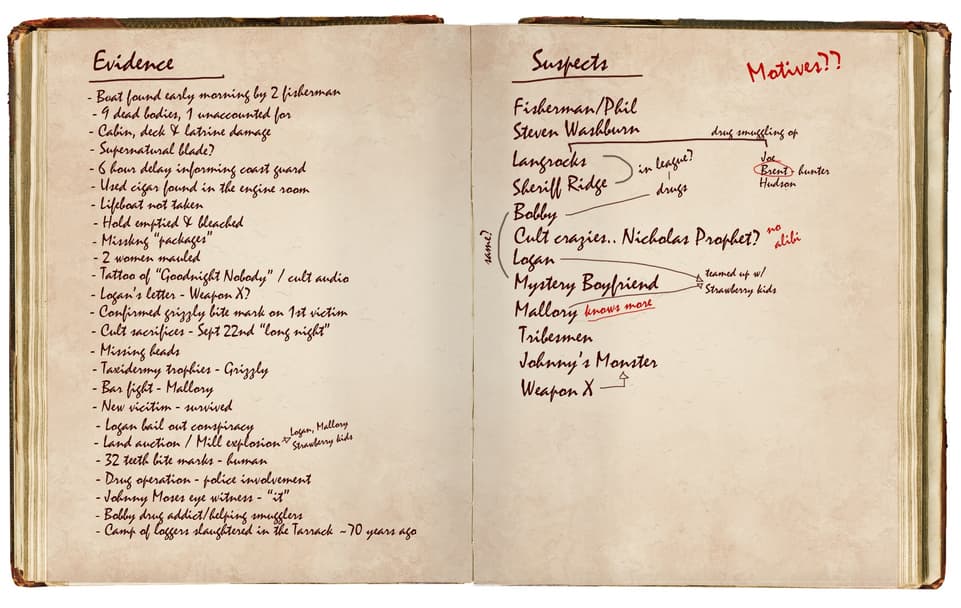 Evidence
- Boat found early morning by 2 fisherman
- 9 dead bodies, 1 unaccounted for
- Cabin, deck & latrine damage
- Supernatural blade?
- 6 hour delay informing coast guard
- Used cigar found in the engine room
- Lifeboat not taken
- Hold emptied & bleached
- Misskng "packages"
- 2 women mauled
- Tattoo of "Goodnight Nobody" / cult audio
- Logan's letter - Weapon X?
- Confirmed grizzly bite mark on 1st victim
- Cult sacrifices - Sept 22nd "long night"
- Missing heads
- Taxidermy trophies - Grizzly
- Bar fight - Mallory
- New vicitim - survived
- Logan bail out conspiracy
- Land auction / Mill explosion
Logan, Mallory
Strawberry kids
- 32 teeth bite marks - human
- Drug operation - police involvement
- Johnny Moses eye witness - "it"
- Bobby drug addict/helping smugglers
- Camp of loggers slaughtered in the Tarrack ~70 years ago
Suspects
Motives??
Fisherman/Phil
Steven Washburn
drug smuggling op
Joe
Brent - hunter
Hudson
Langrocks
in league?
Sheriff Ridge
drugs
Bobby
same?
Cult crazies.. Nicholas Prophet?
no
alibi
Logan
teamed up w/
Strawberry kids
Mystery Boyfriend
Mallory knows more
Tribesmen
Johnny's Monster
Weapon X